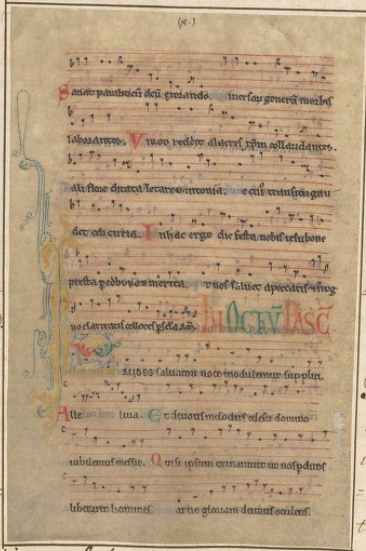 (8.)
Sanat paraliticū dcū exorando. iuersaq genera morbis
laborantes. Viros reddit alacres xp̄m collaudantes.
ali flore ditata letare
det celi curia. In hac ergo die festa nobis iesu bone
presta p eius merita. t nos saluet a peccatis
uo claritatis collocet p scl̄a. am̄.
IN OCTAV̄ PASC̄
AUDES saluatori uoce modulemur supplici.
Alle luia. Et deuotis melodiis celesti domino
iubilemus messie. Qui se ipsum exinaniuit ut nos p ditos
liberaret homines. arne gloriam deitatis occulens.